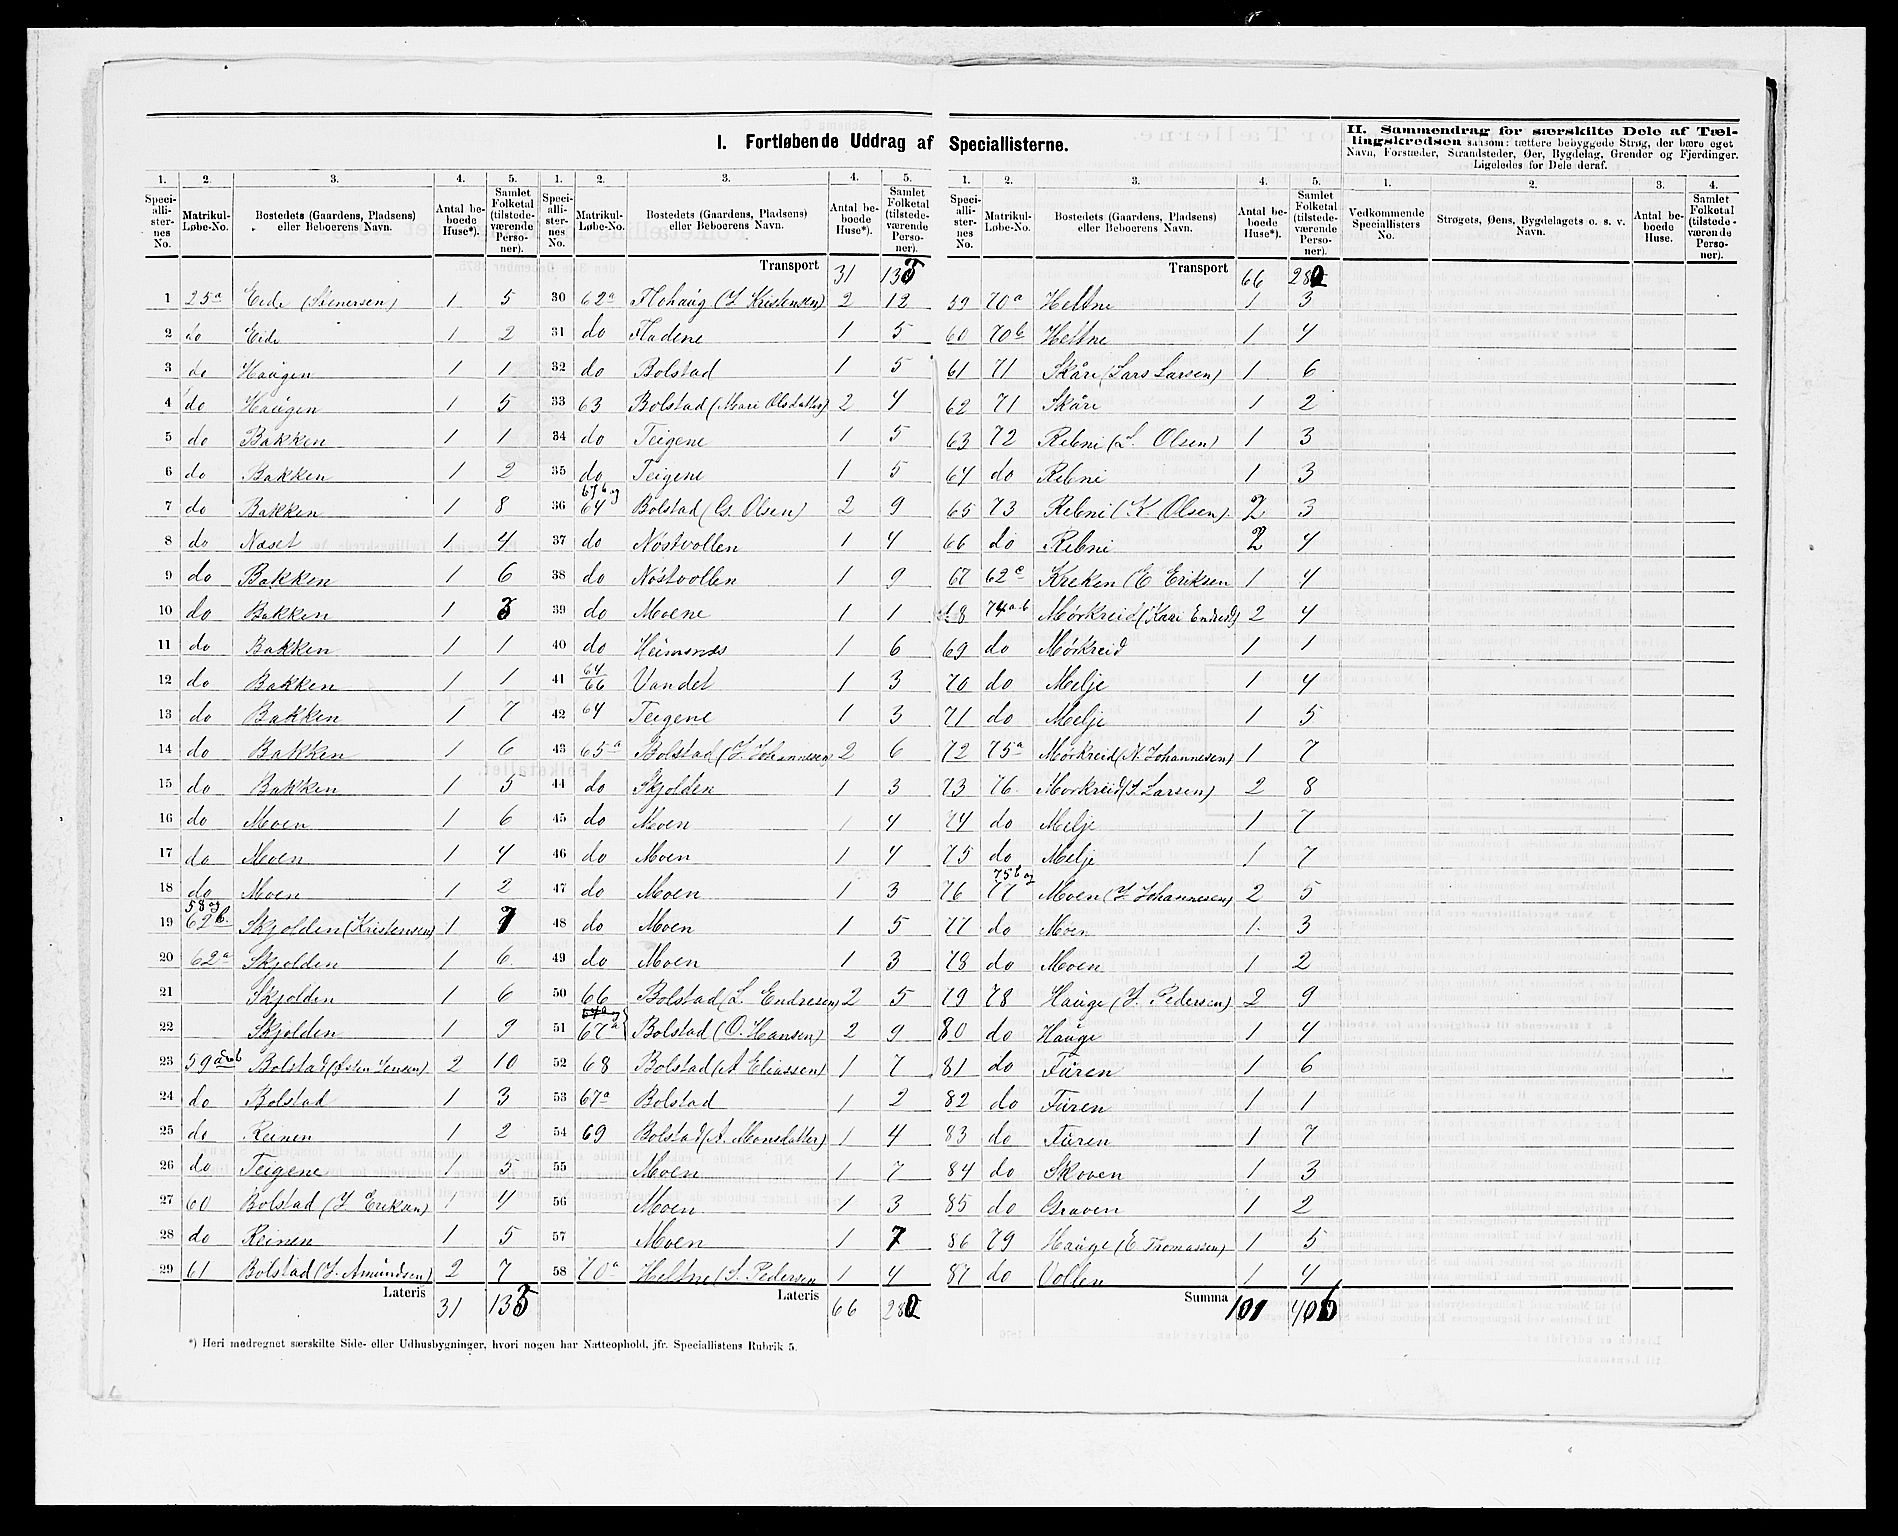 I. Fortløbende Uddrag af Speciallisterne.
II. Sammendrag for særskilte Dele af Tællingskredsen saasom: tættere bebyggede Strøg, der bære eget
Navn, Forstæder, Strandsteder, Øer, Bygdelag, Grender og Fjerdinger.
Ligeledes for Dele deraf.
1. 2. 3. 4. 5.
Speciallisternes No. Matrikul-Løbe-No. Bostedets (Gaardens, Pladsens) eller Beboerens Navn. Antal beboede Huse*). Samlet Folketal (tilstedeværende Personer).
1 25a Eide (Stenersen) 1 5
2 do Eide 1 2
3 do Haugen 1 1
4 do Haugen 1 5
5 do Bakken 1 1
6 do Bakken 1 2
7 do Bakken 1 8
8 do Næset 1 4
9 do Bakken 1 6
10 do Bakken 1 3
11 do Bakken 1 1
12 do Bakken 1 1
13 do Bakken 1 7
14 do Bakken 1 6
15 do Bakken 1 5
16 do Moen 1 6
17 do Moen 1 4
18 do Moen 1 2
19 58 og 62b Skjolden (Kristensen) 1 7
20 62a Skjolden 1 6
21 Skjolden 1 6
22 Skjolden 1 9
23 59a Bolstad (Sten Jensen) 2 10
24 do Bolstad 1 3
25 do Reinen 1 2
26 do Teigene 1 5
27 60 Bolstad (J Eriksen) 1 4
28 do Reinen 1 5
29 61 Bolstad (J. Amundsen) 2 7
Lateris 31 135
1. 2. 3. 4. 5.
Speciallisternes No. Matrikul-Løbe-No. Bostedets (Gaardens, Pladsens) eller Beboerens Navn. Antal beboede Huse*). Samlet Folketal (tilstedeværende Personer).
Transport 31 135
30 62a Flohaug (J Kristensen) 2 12
31 do Fladene 1 5
32 do Bolstad 1 5
33 63 Bolstad (Mari Olsdatter) 2 4
34 do Teigene 1 5
35 do Teigene 1 5
36 67b og 64 Bolstad (G. Olsen) 2 9
37 do Nøstvollen 1 4
38 do Nøstvollen 1 9
39 do Moene 1 1
40 do Heimsnes 1 6
41 64/66 Vandet 1 3
42 64 Teigene 1 3
43 65a Bolstad (J. Johannesen) 2 6
44 do Skjolden 1 3
45 do Moen 1 4
46 do Moen 1 4
47 do Moen 1 3
48 do Moen 1 5
49 do Moen 1 3
50 66 Bolstad (L. Endresen) 2 5
51 67a Bolstad (O. Hansen) 2 9
52 68 Bolstad (A Eliassen) 1 7
53 67a Bolstad 1 2
54 69 Bolstad (A. Monsdatter) 1 4
55 Moen 1 7
56 Moen 1 3
57 Moen 1 7
58 70a Heltne (S. Pedersen 1 4
Lateris 66 280
1. 2. 3. 4. 5.
Speciallisternes No. Matrikul-Løbe-No. Bostedets (Gaardens, Pladsens) eller Beboerens Navn. Antal beboede Huse*). Samlet Folketal (tilstedeværende Personer).
Transport 66 280
59 70a Heltne 1 3
60 70b Heltne 1 4
61 71 Skåri (Lars Larsen) 1 6
62 71 Skåri 1 2
63 72 Rebni (L. Olsen) 1 3
64 do Rebni 1 3
65 73 Rebni (K. Olsen) 2 3
66 do Rebni 2 4
67 62c Kreken (E Eriksen 1 4
68 74a-b Mørkreid (Kari Endresd) 2 4
69 do Mørkreid 1 1
70 do Melje 1 4
71 do Melje 1 5
72 75a Mørkreid (N. Johannesen) 1 7
73 76 Mørkreid (S. Larsen) 2 8
74 do Melje 1 7
75 do Melje 1 7
76 75b og 77 Moen (J Johannesen) 2 5
77 do Moen 1 3
78 do Moen 1 2
79 78 Hauge (J. Pedersen) 2 9
80 do Hauge 1 4
81 do Furen 1 6
82 do Furen 1 1
83 do Furen 1 7
84 do Skoven 1 3
85 do Graven 1 2
86 79 Hauge (E Thomassen) 1 5
87 do Vollen 1 4
Summa 101 406
1. 2. 3. 4.
Vedkommende Speciallisters No. Strøgets, Øens, Bygdelagets o. s. v. Navn. Antal beboede Huse. Samlet Folketal (tilstedeværende Personer).
*) Heri medregnet særskilte Side- eller Udhusbygninger, hvori nogen har Natteophold, jfr. Speciallistens Rubrik 5.